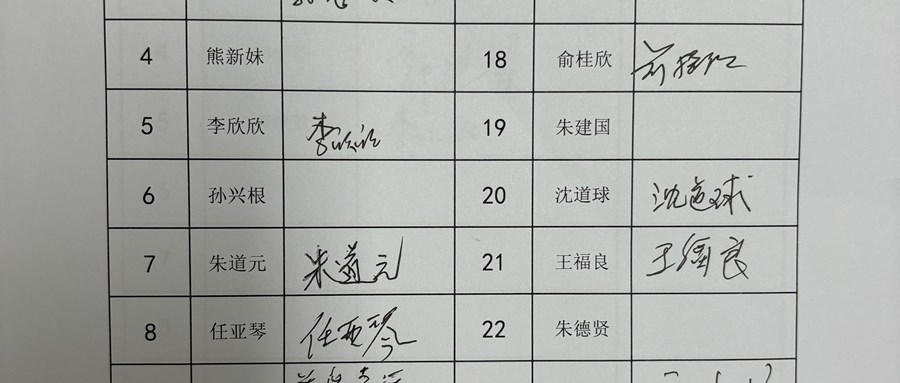 4 熊新妹 18 俞桂欣 俞桂欣
5 李欣欣 李欣欣 19 朱建国
6 孙兴根 20 沈道球 沈道球
7 朱道元 朱道元 21 王福良 王福良
8 任亚琴 任亚琴 22 朱德贤